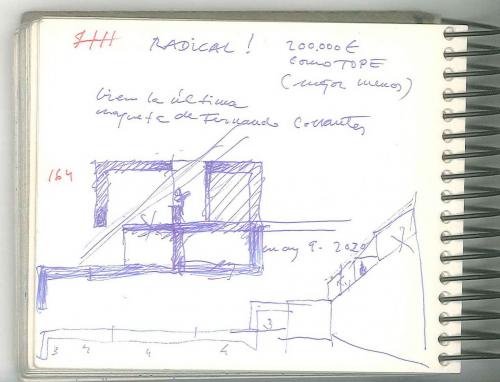 RADICAL! 200.000€
como TOPE
(mejor menos)
bien la última
maqueta de Fernando Corrantes
164
may 9-2020
3
3 4 4 4